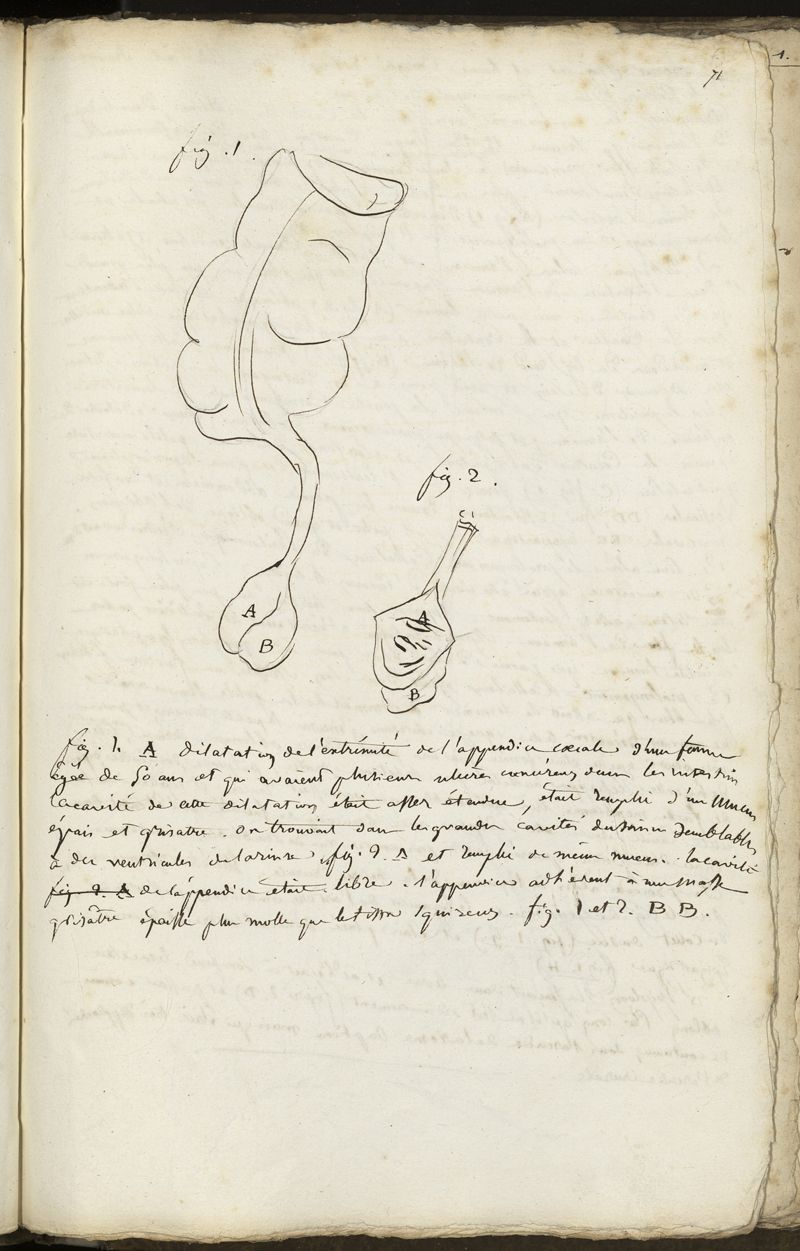 1.
71
fig. 1.
fig. 2.
A
B
A
B
fig. 1. A dilatation de l'extrémité de l'appendice coecale d'une femme
agée de 50 ans et qui avaient plusieurs ulcères cancéreux dans les intestins
la cavité de cette dilatation était assez étendue, était rempli d'un mucus
épais et grisatre. on trouvait dans les grandes cavités semblables
à des ventricules du larinx. fig. 2. A et rempli de même mucus. la cavité
fig. 2. A de l'appendice était libre. l'appendice adhérent à une masse
grisâtre épaisse plus molle que le tissu squireux. fig. 1 et 2. B B.